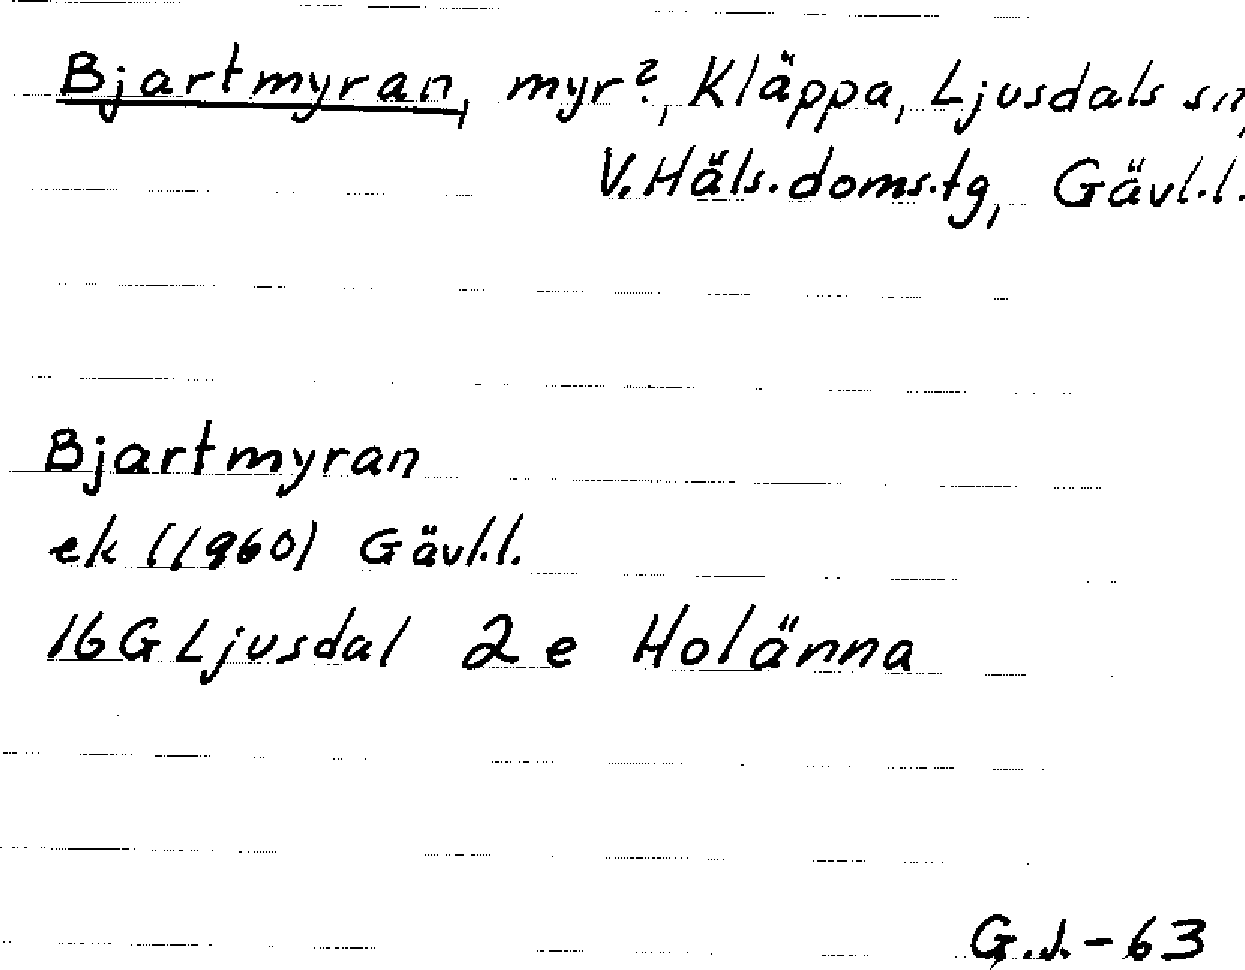 Bjartmyran, myr?, Kläppa, Ljusdals sn,
V. Häls. doms. tg, Gävl.l.
Bjartmyran
ek (1960) Gävl.l.
16G Ljusdal 2e Holänna
G.J.-63